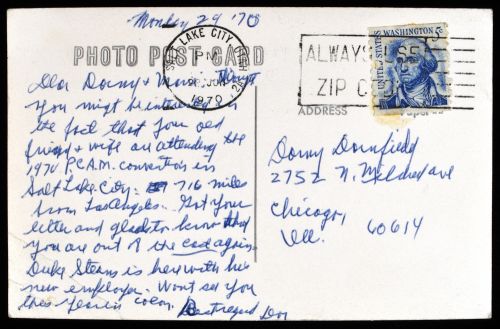 Monday 29 '70
PHOTO POST CARD
SALT LAKE CITY, UTAH
PM
29 JUN
1970
ALWAYS USE
ZIP CODE
UNITED STATES
WASHINGTON 5c
ADDRESS
Dear Dorny &
You might be interested
the fact that your old
friend & wife are attending the
1970 P.C.A.M. convention in
Salt Lake City. 716 miles
from Los Angeles. Got your
letter and glad to know that
you are out of the cast again.
Duke Stern is here with his
new employer. Wont see you
this year in Colon. Best regard Don
Dorny Dornfield
2752 N. Mildred ave
Chicago,
Ill. 60614